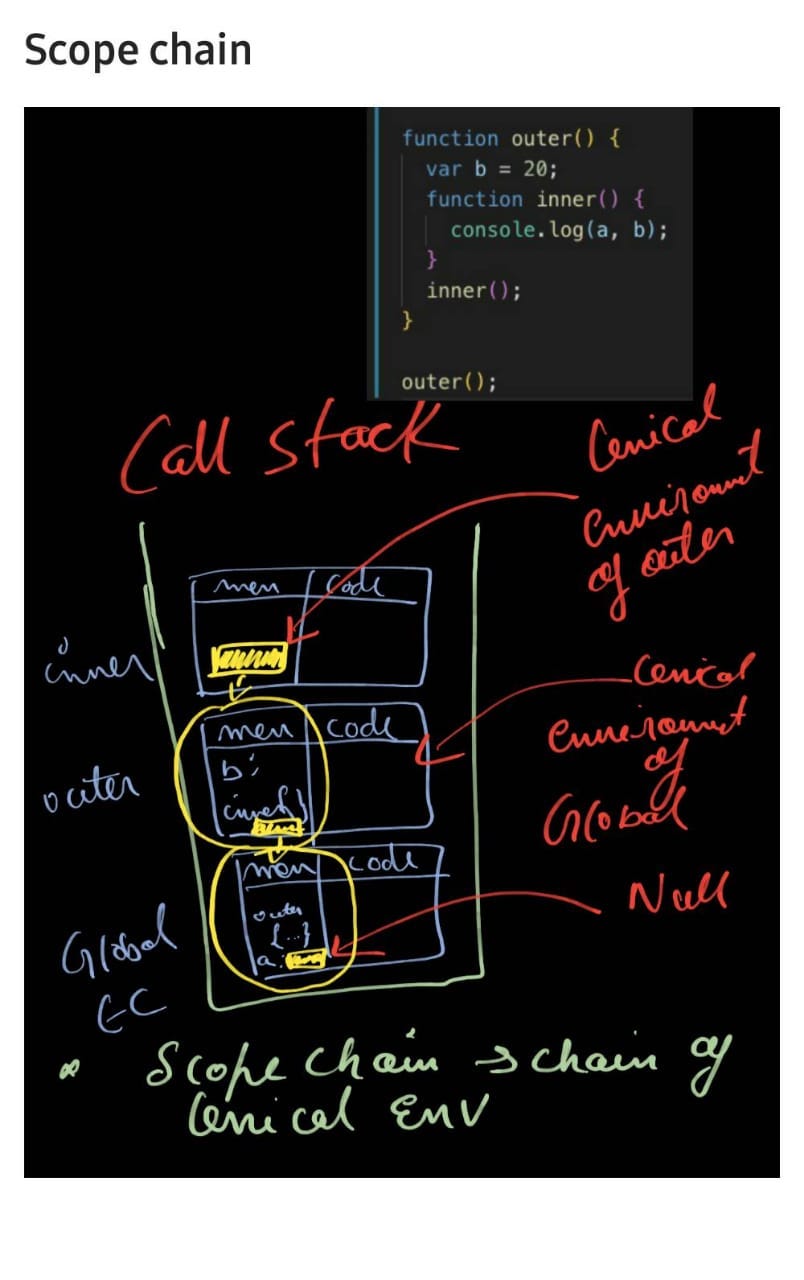 Scope chain
function outer() {
var b = 20;
function inner() {
console.log(a, b);
}
inner();
}
outer();
Call stack
Lexical
Environment
of outer
mem code
inner
Lexical
Environment
of
Global
mem code
b:
outer
inner{}
mem code
Null
outer
{...}
a:
Global
EC
Scope chain → chain of
Lexical ENV